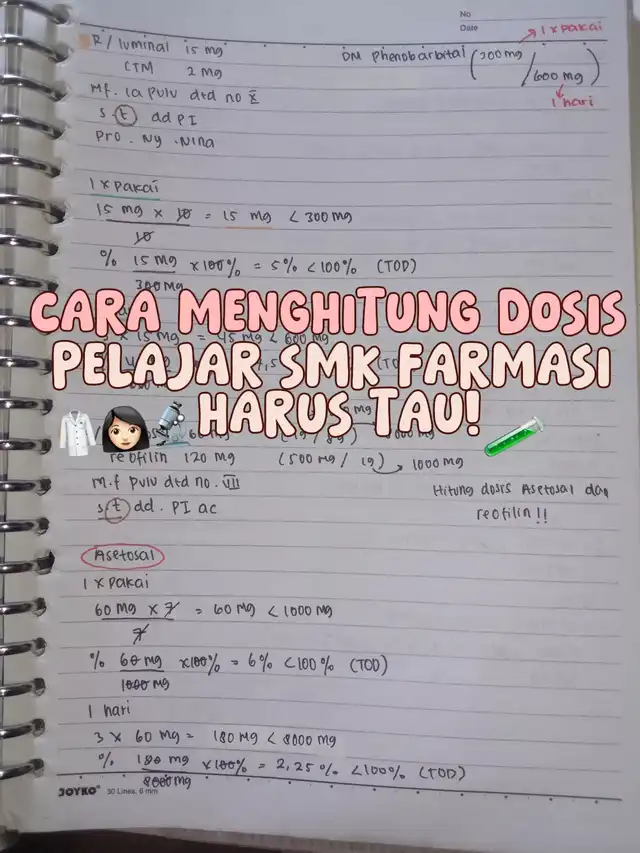 No
Date
1 x pakai
R/ luminal 15 mg
DM Phenobarbital (300 mg / 600 mg)
1 hari
CTM 2 mg
Mf. la pulv dtd no X
s. t dd PI
Pro. Ny. Nina
1 x pakai
15 mg x 10 = 15 mg < 300 mg
10
% 15 mg x100% = 5% < 100% (TOD)
300 mg
CARA MENGHITUNG DOSIS
x 15 mg = 45 mg < 600 mg
PELAJAR SMK FARMASI
HARUS TAU!
teofilin 120 mg (500 mg / 1g) 1000 mg
m.f pulv dtd no. VII
s. t dd. PI ac
Hitung dosis Asetosal dan
teofilin!!
Asetosal
1 x pakai
60 mg x 7 = 60 mg < 1000 mg
7
% 60 mg x100% = 6% < 100% (TOD)
1000 mg
1 hari
3 x 60 mg = 180 mg < 8000 mg
% 180 mg x100% = 2,25% < 100% (TOD)
8000 mg
JOYKO 30 Lines, 6 mm